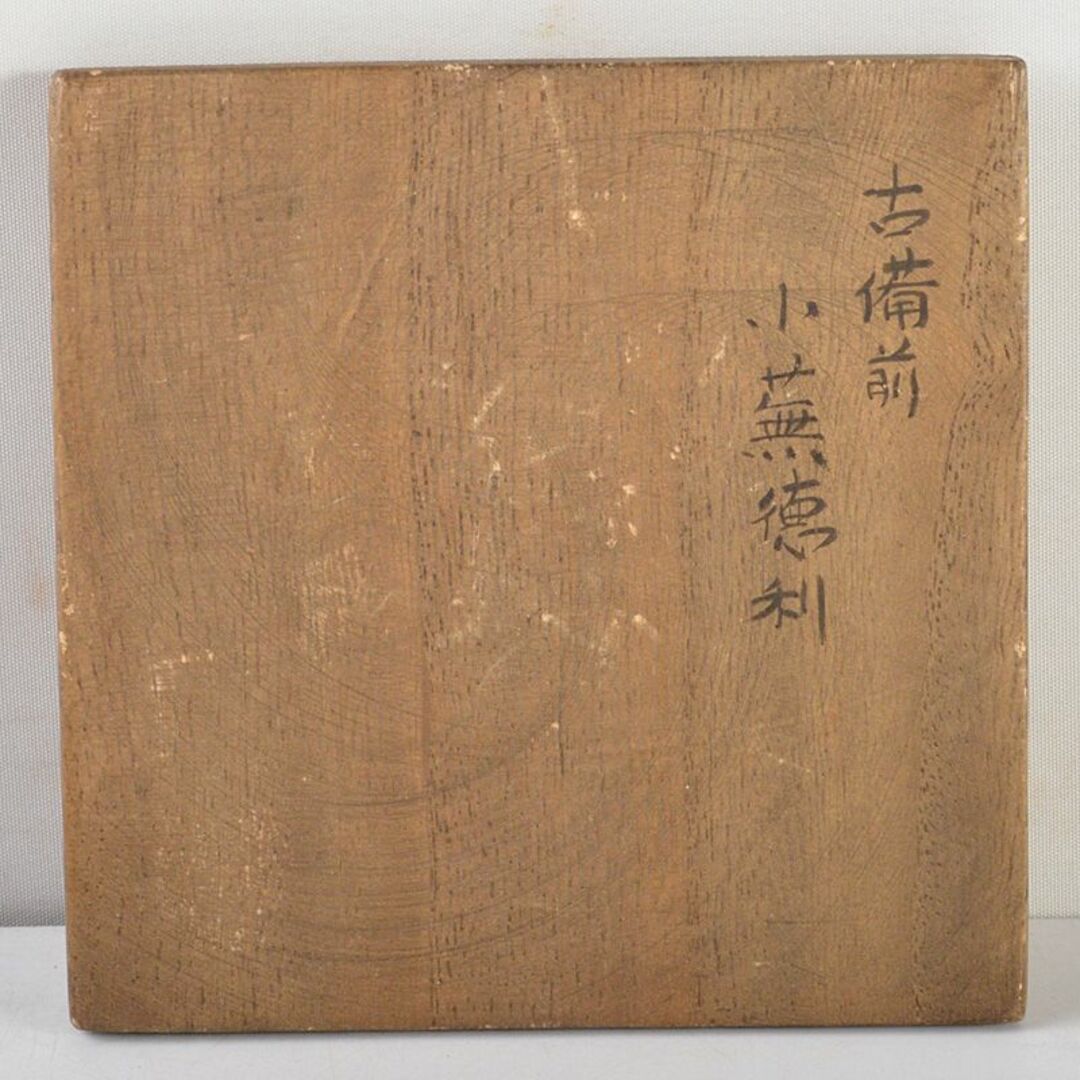 古備前
小蕪徳利